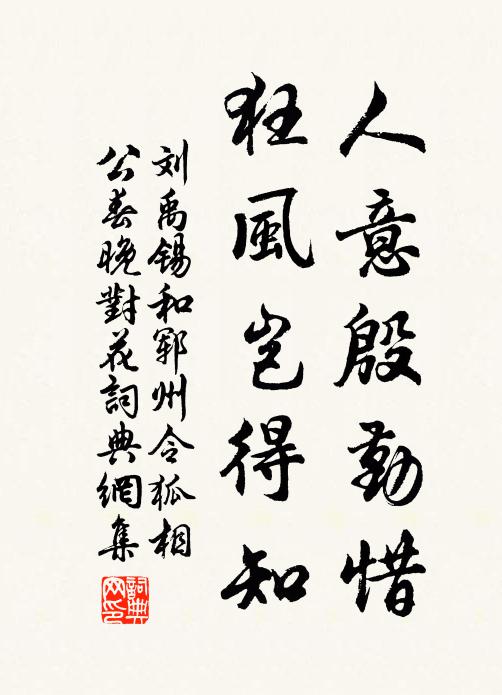 人意殷勤惜
狂風岂得知
刘禹锡和郓州令狐相
公春晚對花詞典網集
詞典网印